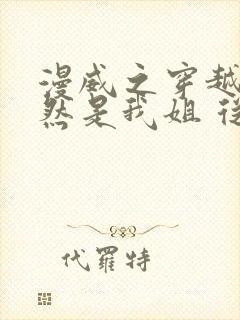 漫威之穿越
然是我姐 從
代羅特